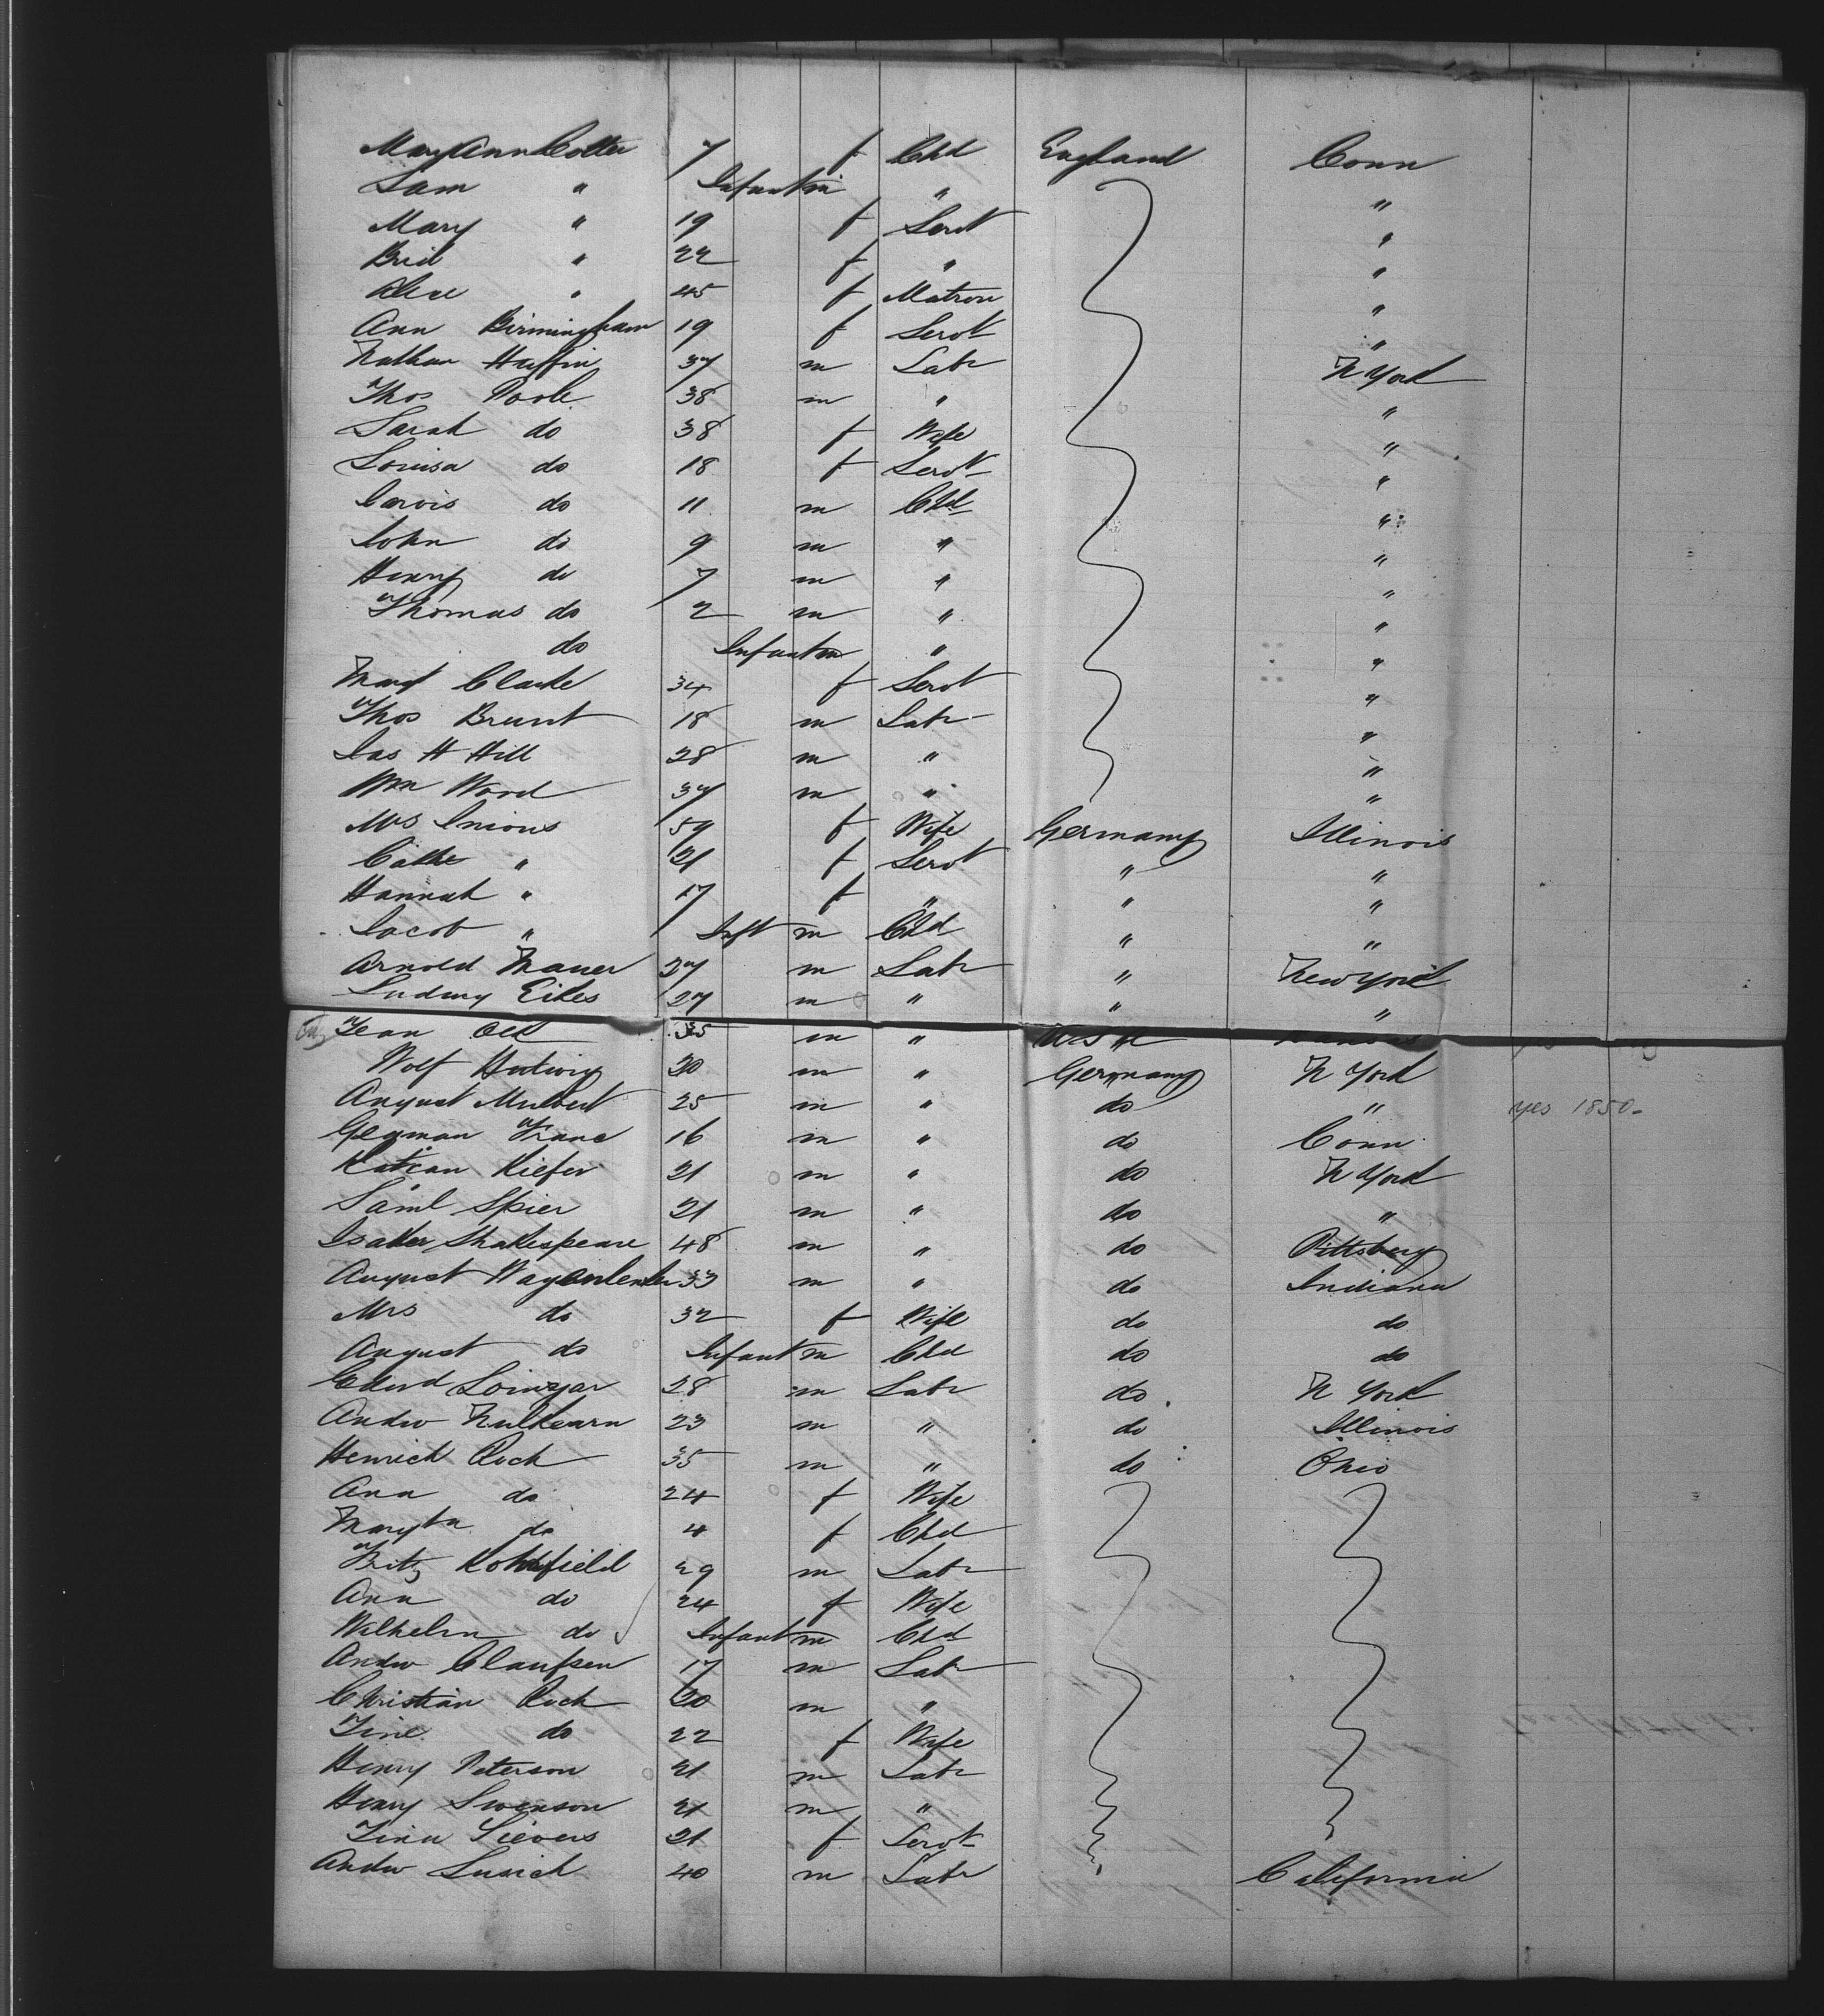 Mary Ann Cotter 7 f Chd England Conn
Sam " Infant m " "
Mary " 19 f Servt "
Brid " 22 f " "
Alice " 45 f Matron "
Ann Birmingham 19 f Servt "
Nathan Huffin 37 m Labr N York
Thos Poole 38 m " "
Sarah do 38 f Wife "
Louisa do 18 f Servt "
Carvis do 11 m Chd "
John do 9 m " "
Henry do 7 m " "
Thomas do 2 m " "
do Infant m " "
Margt Clarke 34 f Servt "
Thos Brunt 18 m Labr "
Jas H Hill 28 m " "
Wm Ward 37 m " "
Mrs Inions 59 f Wife Germany Illinois
Cathe " 21 f Servt " "
Hannah " 17 f " " "
Jacob " Inft m Chd " "
Arnold Mauer 37 m Labr " New York
Ludwig Eikes 27 m " " "
Jean 35 m "
Wolf Hedwig 20 m " Germany N York
August 25 m " do " yes 1850-
Franc 16 m " do Conn
Kiefer 21 m " do N York
Saml Spier 21 m " do "
Shakespeare 48 m " do Pittsburg
August 33 m " do Indiana
Mrs do 32 f Wife do do
August do Infant m Chd do do
28 m Labr do N York
Andw Mulkearn 23 m " do Illinois
Henrich Rock 35 m " do Ohio
Ann do 24 f Wife
Margta do 4 f Chd
Fritz 29 m Labr
Ann do 24 f Wife
Wilhelm do Infant m Chd
Andw Claussen 17 m Labr
Christian Rock 20 m "
Tine do 22 f Wife
Henry Peterson 21 m Labr
Henry Swenson 21 m "
Tina Sievers 21 f Servt
Andw Lusich 40 m Labr California